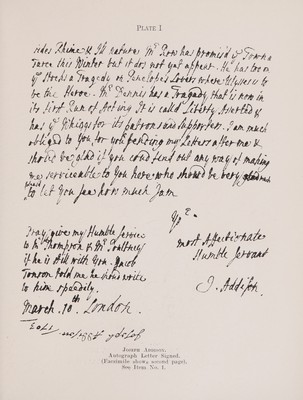 PLATE I
sides Rhime & Ill nature. Mr Row has promis'd ye Town a
Farce this Winter but it does not yet appear. He has too on
ye Stocks a Tragedy on Penelope's Lovers where Ulysses is to
be the Heroe. Mr Dennis has a Tragedy that is now in
its first Run of Acting. It is call'd Liberty Asserted &
has ye Whiggs for its patrons and Supporters. I am much
oblig'd to You for yor sending my Letters after me &
should be glad if you could send out any way of making
me serviceable to You here who should be very glad
to let You see how much I am
Yrs
most Affectionate
Humble Servant
J. Addison
Pray give my Humble Service
to Mr Thompson & Mr Poultney
if he is still with You. Jacob
Tonson told me he would write
to him speedily.
March. 10th. London.
Joseph Addison 1703
JOSEPH ADDISON.
Autograph Letter Signed.
(Facsimile shows second page).
See Item No. 1.